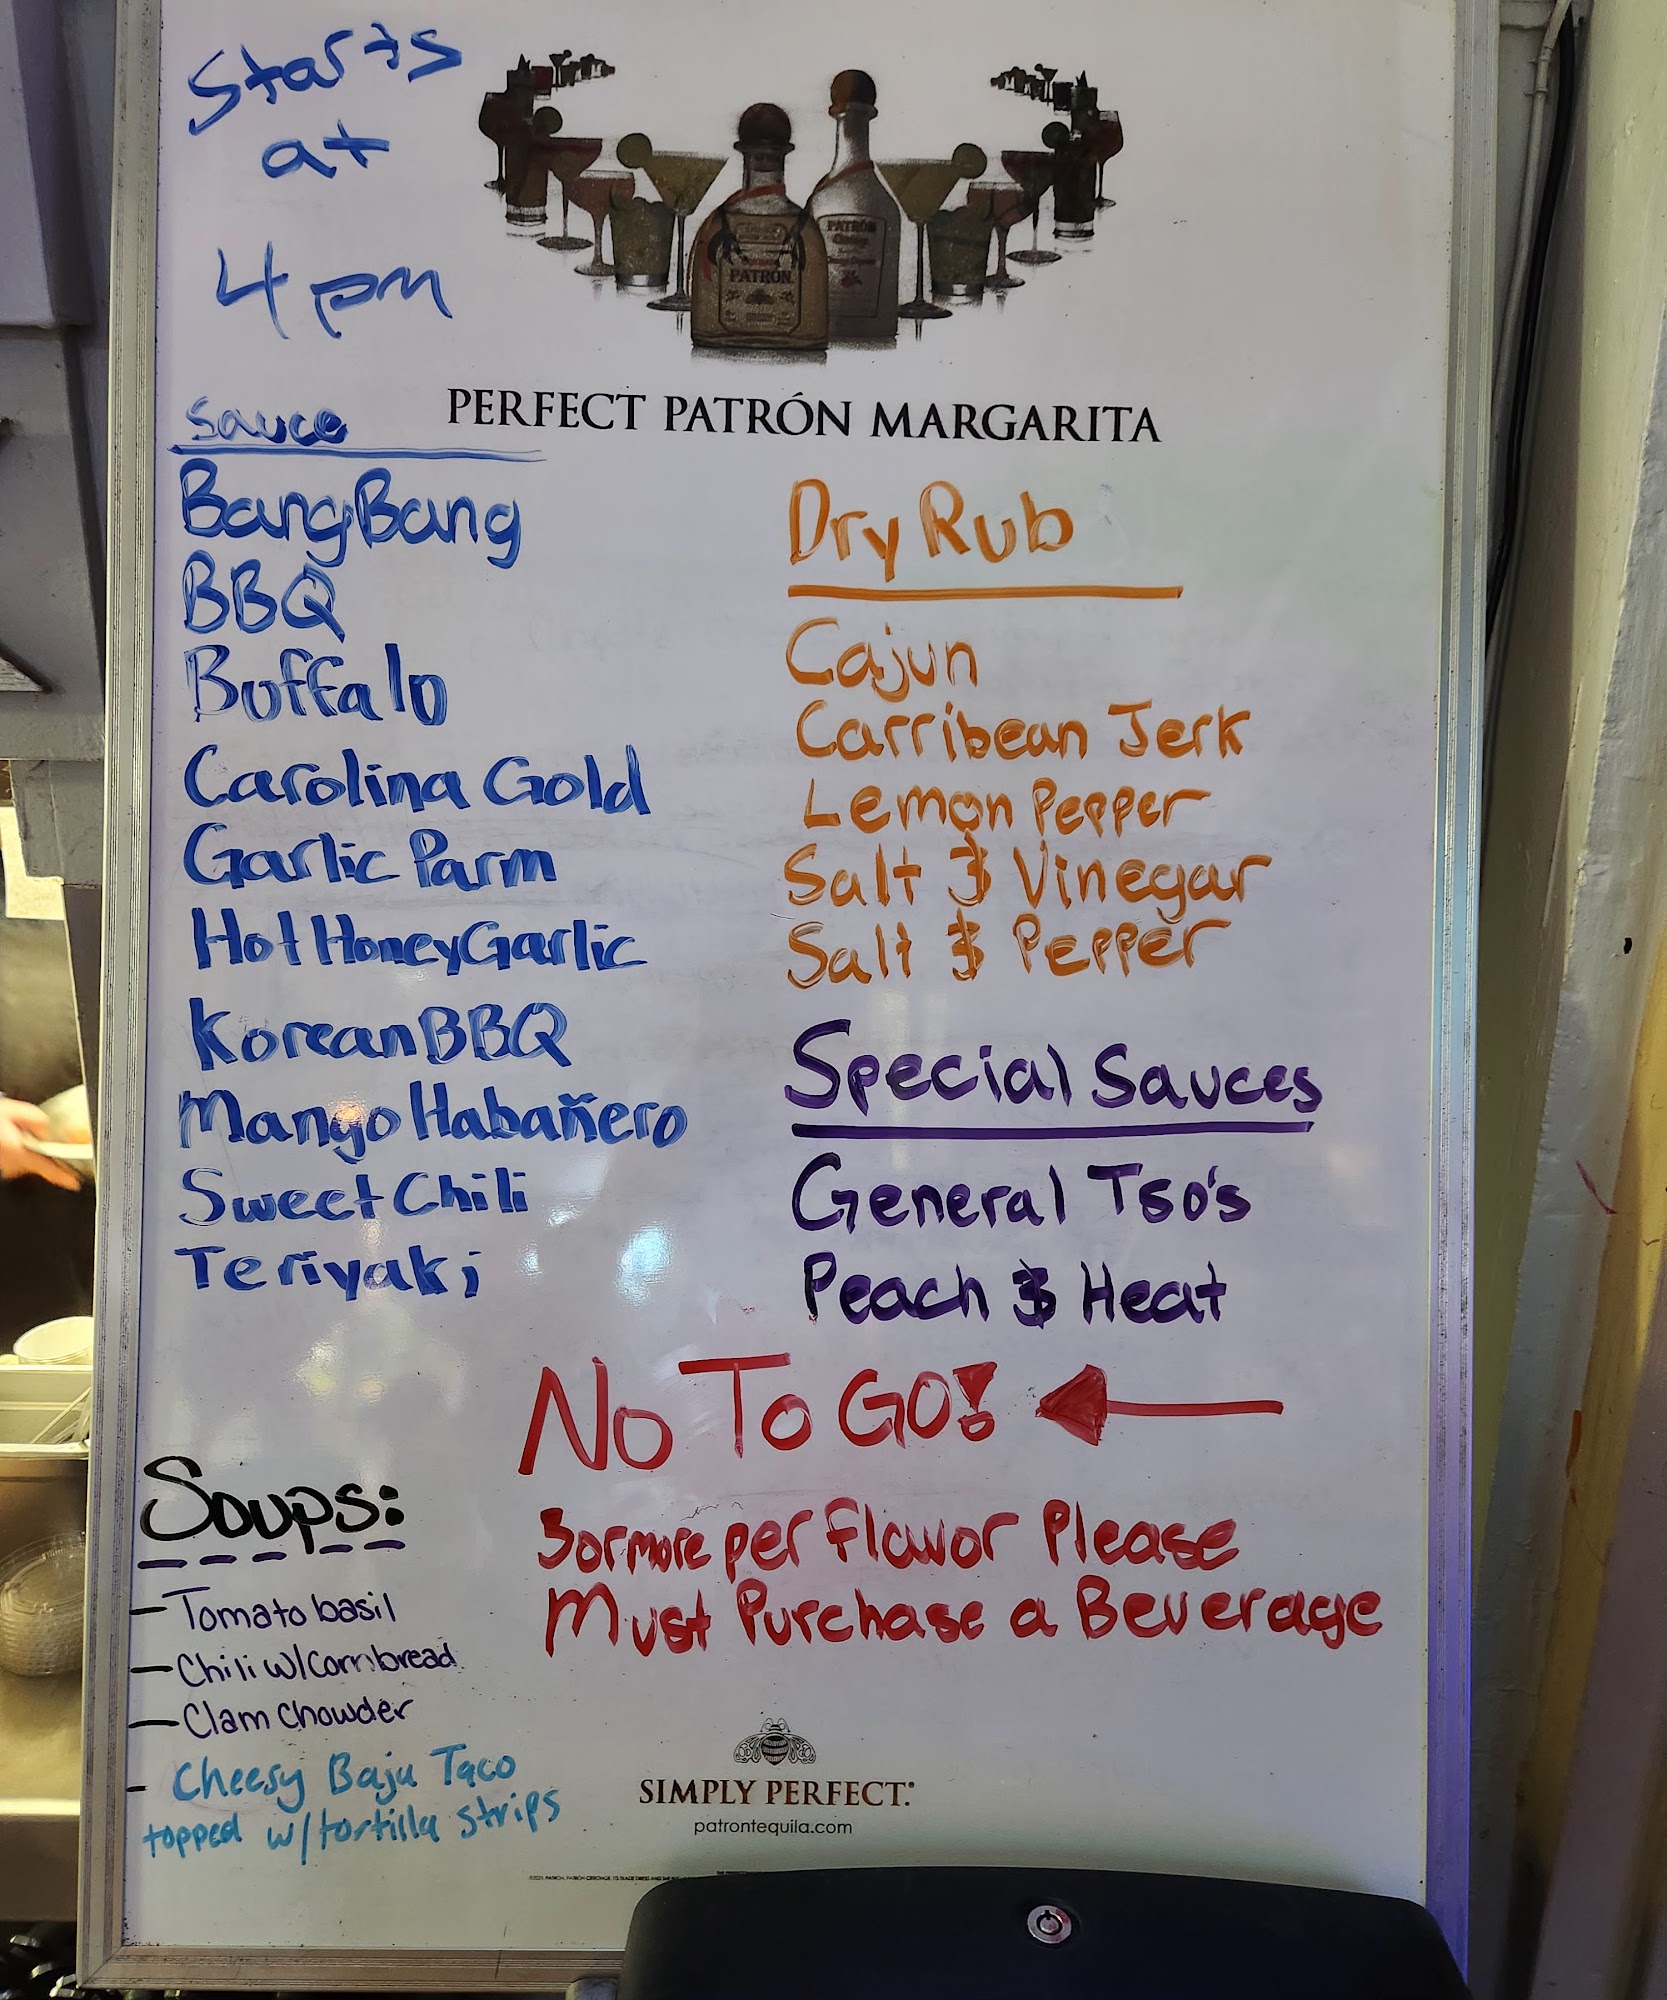 Starts
at
4pm
PATRÓN
PATRÓN
PERFECT PATRÓN MARGARITA
Sauce
BangBang
BBQ
Buffalo
Carolina Gold
Garlic Parm
Hot Honey Garlic
Korean BBQ
Mango Habañero
Sweet Chili
Teriyaki
Dry Rub
Cajun
Carribean Jerk
Lemon Pepper
Salt & Vinegar
Salt & Pepper
Special Sauces
General Tso's
Peach & Heat
No To GO!
3 or more per flavor Please
Must Purchase a Beverage
Soups:
- Tomato basil
- Chili w/ Cornbread
- Clam Chowder
- Cheesy Baja Taco
topped w/ tortilla strips
SIMPLY PERFECT.
patrontequila.com